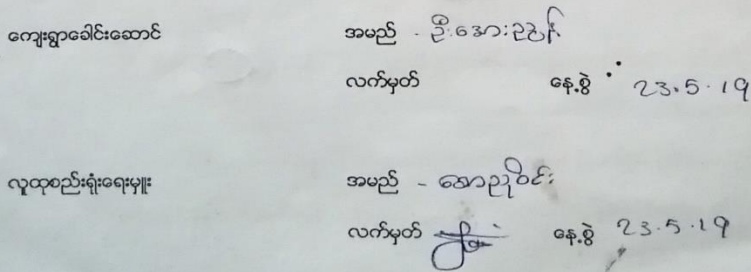 ကျေးရွာခေါင်းဆောင် အမည် - ဦးအေး
လက်မှတ် နေ့စွဲ 23.5.19
လူထုစည်းရုံးရေးမှူး အမည် - အောညိုဝင်း
လက်မှတ် နေ့စွဲ 23.5.19